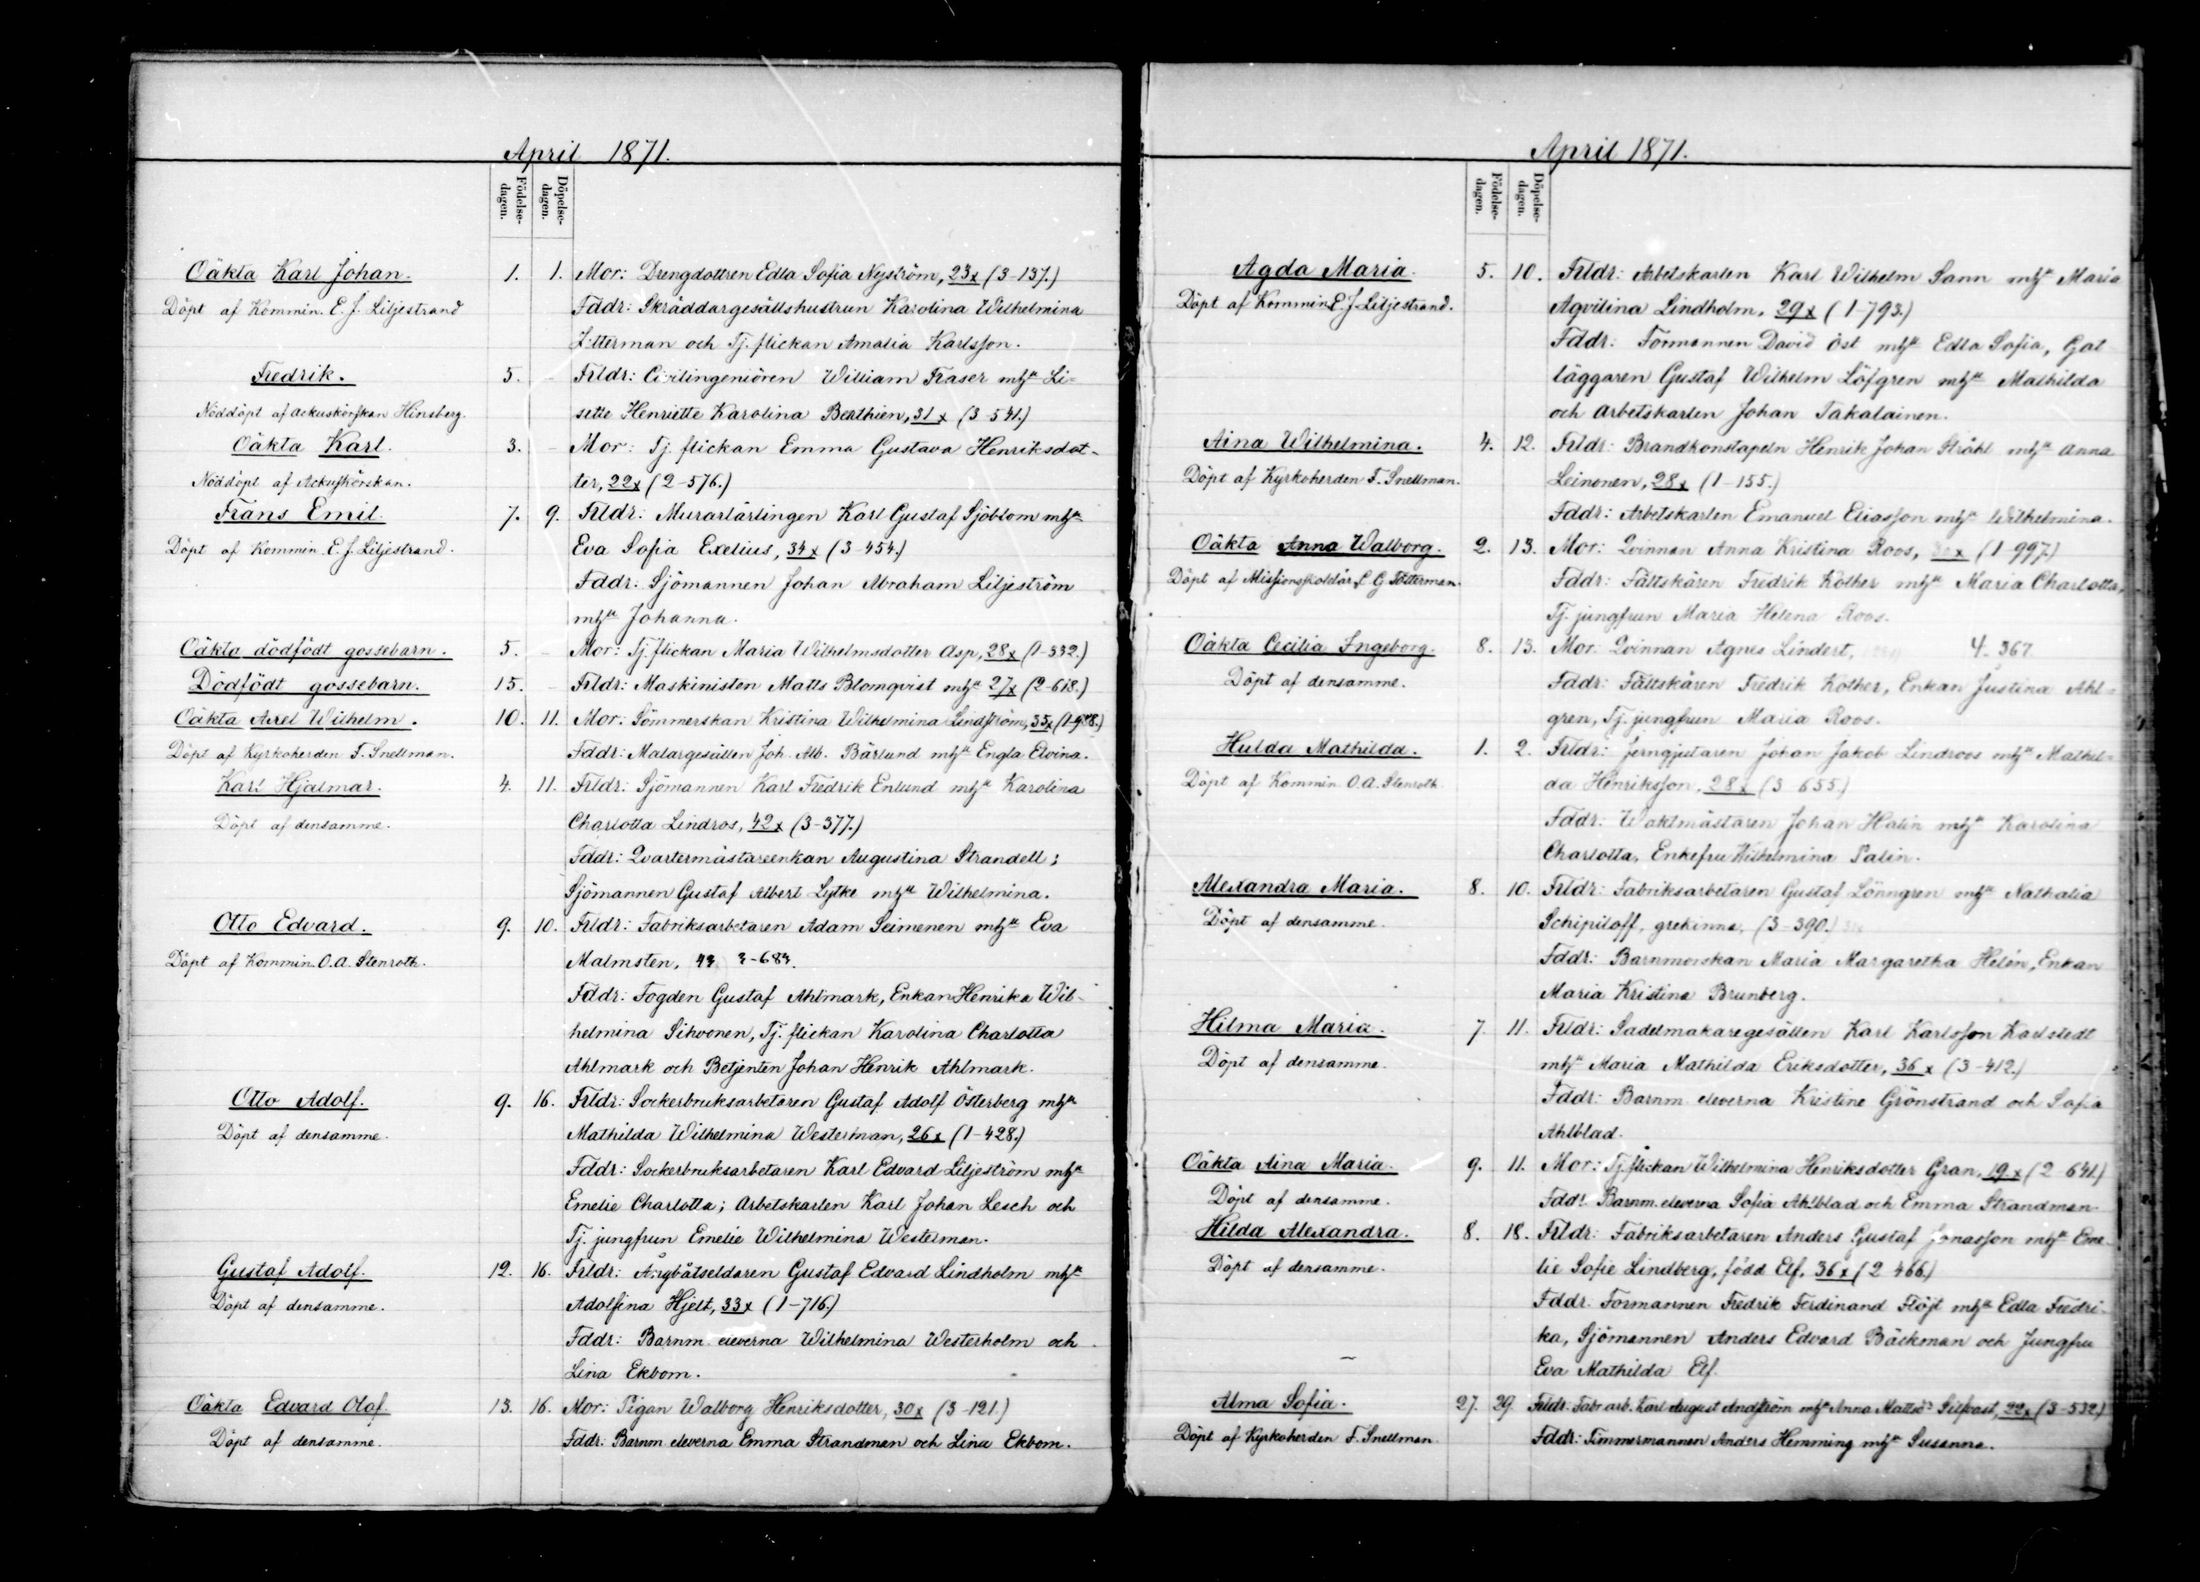 April 1871.
Födelse-
dagen.
Döpelse-
dagen.
Oäkta Karl Johan. 1. 1. Mor: Drengdottren Edla Sofia Nyström, 23x (3-137.)
Döpt af Kommin. E. J. Liljestrand Fddr: Skräddargesällshustrun Karolina Wilhelmina
Zitterman och Tj. flickan Amalia Karlsson.
Fredrik. 5. - Frldr: Civilingeniören William Fraser mhu Li=
Nöddöpt af Ackuskörskan Hinsberg. sette Henriette Karolina Berthien, 31x (3-541.)
Oäkta Karl. 3. - Mor: Tj. flickan Emma Gustava Henriksdot-
Nöddöpt af Ackuskörskan. ter, 22x (2-576.)
Frans Emil. 7. 9. Frldr: Murarlärlingen Karl Gustaf Sjöblom mhu
Döpt af Kommin. E. J. Liljestrand. Eva Sofia Exelius, 34x (3-454.)
Fddr: Sjömannen Johan Abraham Liljeström
mhu Johanna.
Oäkta dödfödt gossebarn. 5. - Mor: Tj. flickan Maria Wilhelmsdotter Asp, 28x (1-332.)
Dödfödt gossebarn. 15. - Frldr: Maskinisten Matts Blomqvist mhu 27x (2-618.)
Oäkta Axel Wilhelm. 10. 11. Mor: Sömmerskan Kristina Wilhelmina Lindström, 35x (1-988.)
Döpt af Kyrkoherden F. Snellman. Fddr: Malargesällen Joh. Alb. Bärlund mhu Engla Elvina.
Karl Hjalmar. 4. 11. Frldr: Sjömannen Karl Fredrik Enlund mhu Karolina
Döpt af densamme. Charlotta Lindros, 42x (3-377.)
Fddr: Qvartermästareenkan Augustina Strandell;
Sjömannen Gustaf Albert Lytke mhu Wilhelmina.
Otto Edvard. 9. 10. Frldr: Fabriksarbetaren Adam Seimenen mhu Eva
Döpt af Kommin. O. A. Stenroth. Malmsten, 43 3-683.
Fddr: Fogden Gustaf Ahlmark, Enkan Henrika Wil-
helmina Sihvonen, Tj. flickan Karolina Charlotta
Ahlmark och Betjenten Johan Henrik Ahlmark.
Otto Adolf. 9. 16. Frldr: Sockerbruksarbetaren Gustaf Adolf Österberg mhu
Döpt af densamme. Mathilda Wilhelmina Westerman, 26x (1-428.)
Fddr: Sockerbruksarbetaren Karl Edvard Liljeström mhu
Emelie Charlotta; Arbetskarlen Karl Johan Lesch och
Tj. jungfrun Emelie Wilhelmina Westerman.
Gustaf Adolf. 12. 16. Frldr: Ångbåtseldaren Gustaf Edvard Lindholm mhu
Döpt af densamme. Adolfina Hjelt, 33x (1-716.)
Fddr: Barnm. eleverna Wilhelmina Westerholm och
Lina Ekbom.
Oäkta Edvard Olof. 13. 16. Mor: Pigan Walborg Henriksdotter, 30x (3-121.)
Döpt af densamme. Fddr: Barnm eleverna Emma Strandman och Lina Ekbom.
April 1871.
Födelse-
dagen.
Döpelse-
dagen.
Agda Maria. 5. 10. Frldr: Arbetskarlen Karl Wilhelm Sann mhu Maria
Döpt af Kommin. E. J. Liljestrand. Aqvilina Lindholm, 29x (1-793.)
Fddr: Förmannen David Öst mhu Edla Sofia, Gol-
läggaren Gustaf Wilhelm Löfgren mhu Mathilda
och Arbetskarlen Johan Takalainen.
Aina Wilhelmina. 4. 12. Frldr: Brandkonstapeln Henrik Johan Ståhl mhu Anna
Döpt af Kyrkoherden F. Snellman. Leinonen, 28x (1-155.)
Fddr: Arbetskarlen Emanuel Eliasson mhu Wilhelmina.
Oäkta Anna Walborg. 2. 13. Mor: Qvinnan Anna Kristina Roos, (1-997.)
Döpt af Missionsskolelär. C G Tötterman. Fddr: Fältskären Fredrik Köther mhu Maria Charlotta,
Tj. jungfrun Maria Helena Roos.
Oäkta Cecilia Ingeborg. 8. 13. Mor: Qvinnan Agnes Lindert, 4-367
Döpt af densamme. Fddr: Fältskären Fredrik Köther, Enkan Justina Ahl=
gren, Tj. jungfrun Maria Roos.
Hulda Mathilda. 1. 2. Frldr: Jerngjutaren Johan Jakob Lindroos mhu Mathil=
Döpt af Kommin O. A. Stenroth. da Henriksson, 28x (3 655.)
Fddr: Waktmästaren Johan Halin mhu Karolina
Charlotta, Enkefru Wilhelmina Palin.
Alexandra Maria. 8. 10. Frldr: Fabriksarbetaren Gustaf Lönngren mhu Nathalia
Döpt af densamme. Schipiloff, grekinna, (3-390.)
Fddr: Barnmorskan Maria Margaretha Helén, Enkan
Maria Kristina Brunberg.
Hilma Maria. 7. 11. Frldr: Sadelmakaregesällen Karl Karlsson Karlstedt
Döpt af densamme. mhu Maria Mathilda Eriksdotter, 36x (3-412.)
Fddr: Barnm eleverna Kristine Grönstrand och Sofia
Ahlblad.
Oäkta Aina Maria. 9. 11. Mor: Tj. flickan Wilhelmina Henriksdotter Gran, 19x (2 641.)
Döpt af densamme. Fddr. Barnm. eleverna Sofia Ahlblad och Emma Strandman
Hilda Alexandra. 8. 18. Frldr: Fabriksarbetaren Anders Gustaf Jonasson mhu Eme-
Döpt af densamme. lie Sofie Lindberg, född Elf, 36x (2 466.)
Fddr. Formannen Fredrik Ferdinand Flöjt mhu Edla Fredri-
ka, Sjömannen Anders Edvard Bäckman och Jungfru
Eva Mathilda Elf.
Alma Sofia. 27. 29. Frldr: Fabr.arb. Karl August Andström mhu Anna Mattsdr Silfvast, 22x (3-532.)
Döpt af Kyrkoherden F. Snellman. Fddr: Timmermannen Anders Hemming mhu Susanna.